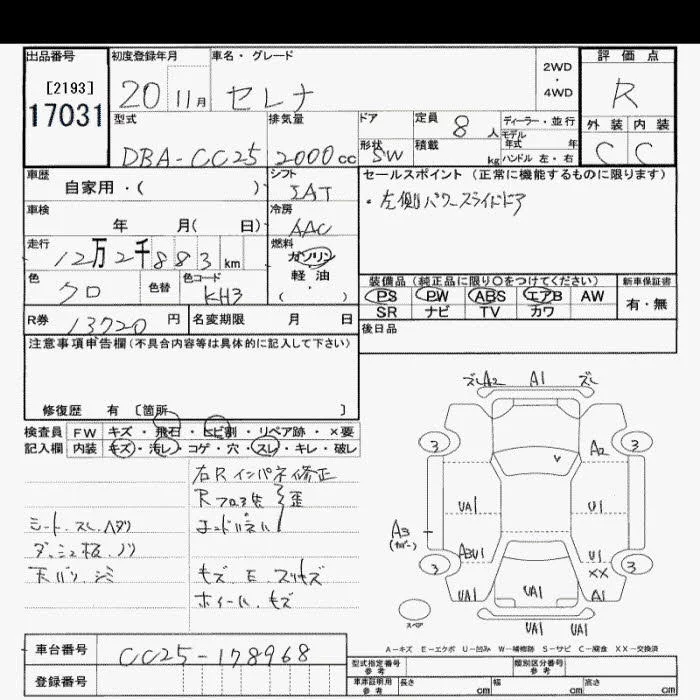 出品番号 初度登録年月 車名・グレード 2WD・4WD 評価点
[2193]
17031
20 11月 セレナ R
型式 排気量 ドア形状 定員 8人 ディーラー・並行 外装 内装
DBA-CC25 2000cc SW 積載 kg モデル年式 年 ハンドル 左・右 C C
車歴 自家用・( ) シフト IAT セールスポイント(正常に機能するものに限ります)
車検 年 月( 日) 冷房 AAC ・左側パワースライドドア
走行 12万2千883km 燃料 ガソリン
軽油・( )
色 クロ 色替 色コード KH3 装備品(純正品に限り○をつけてください) 新車保証書
PS PW ABS エアB AW 有・無
R券 13720円 名変期限 月 日 SR ナビ TV カワ
注意事項申告欄(不具合内容等は具体的に記入して下さい) 後日品
修復歴 有 〔箇所 〕
検査員 FW キズ・飛石・ヒビ割・リペア跡・×要
記入欄 内装 キズ・汚レ・コゲ・穴・スレ・キレ・破レ
右Rインパネ修正
Rフロア先 歪
シート.スレ.ヘタリ
ダッシュ板.ノリ
天バリ.シミ キズ.E.スリキズ
ホイール.キズ
ズレ A2 A1 ズレ
3 3
A2
UA1 U1
A3
(カバー)
A3U1 U1
3 XX 3
UA1 UA1 A1
スペア UA1 UA1
A-キズ E-エクボ U-凹み W-補修跡 S-サビ C-腐食 XX-交換済
車台番号 CC25-178968 型式指定番号参考 類別区分番号参考
登録番号 車庫証明用参考 長さ cm 幅 cm 高さ cm